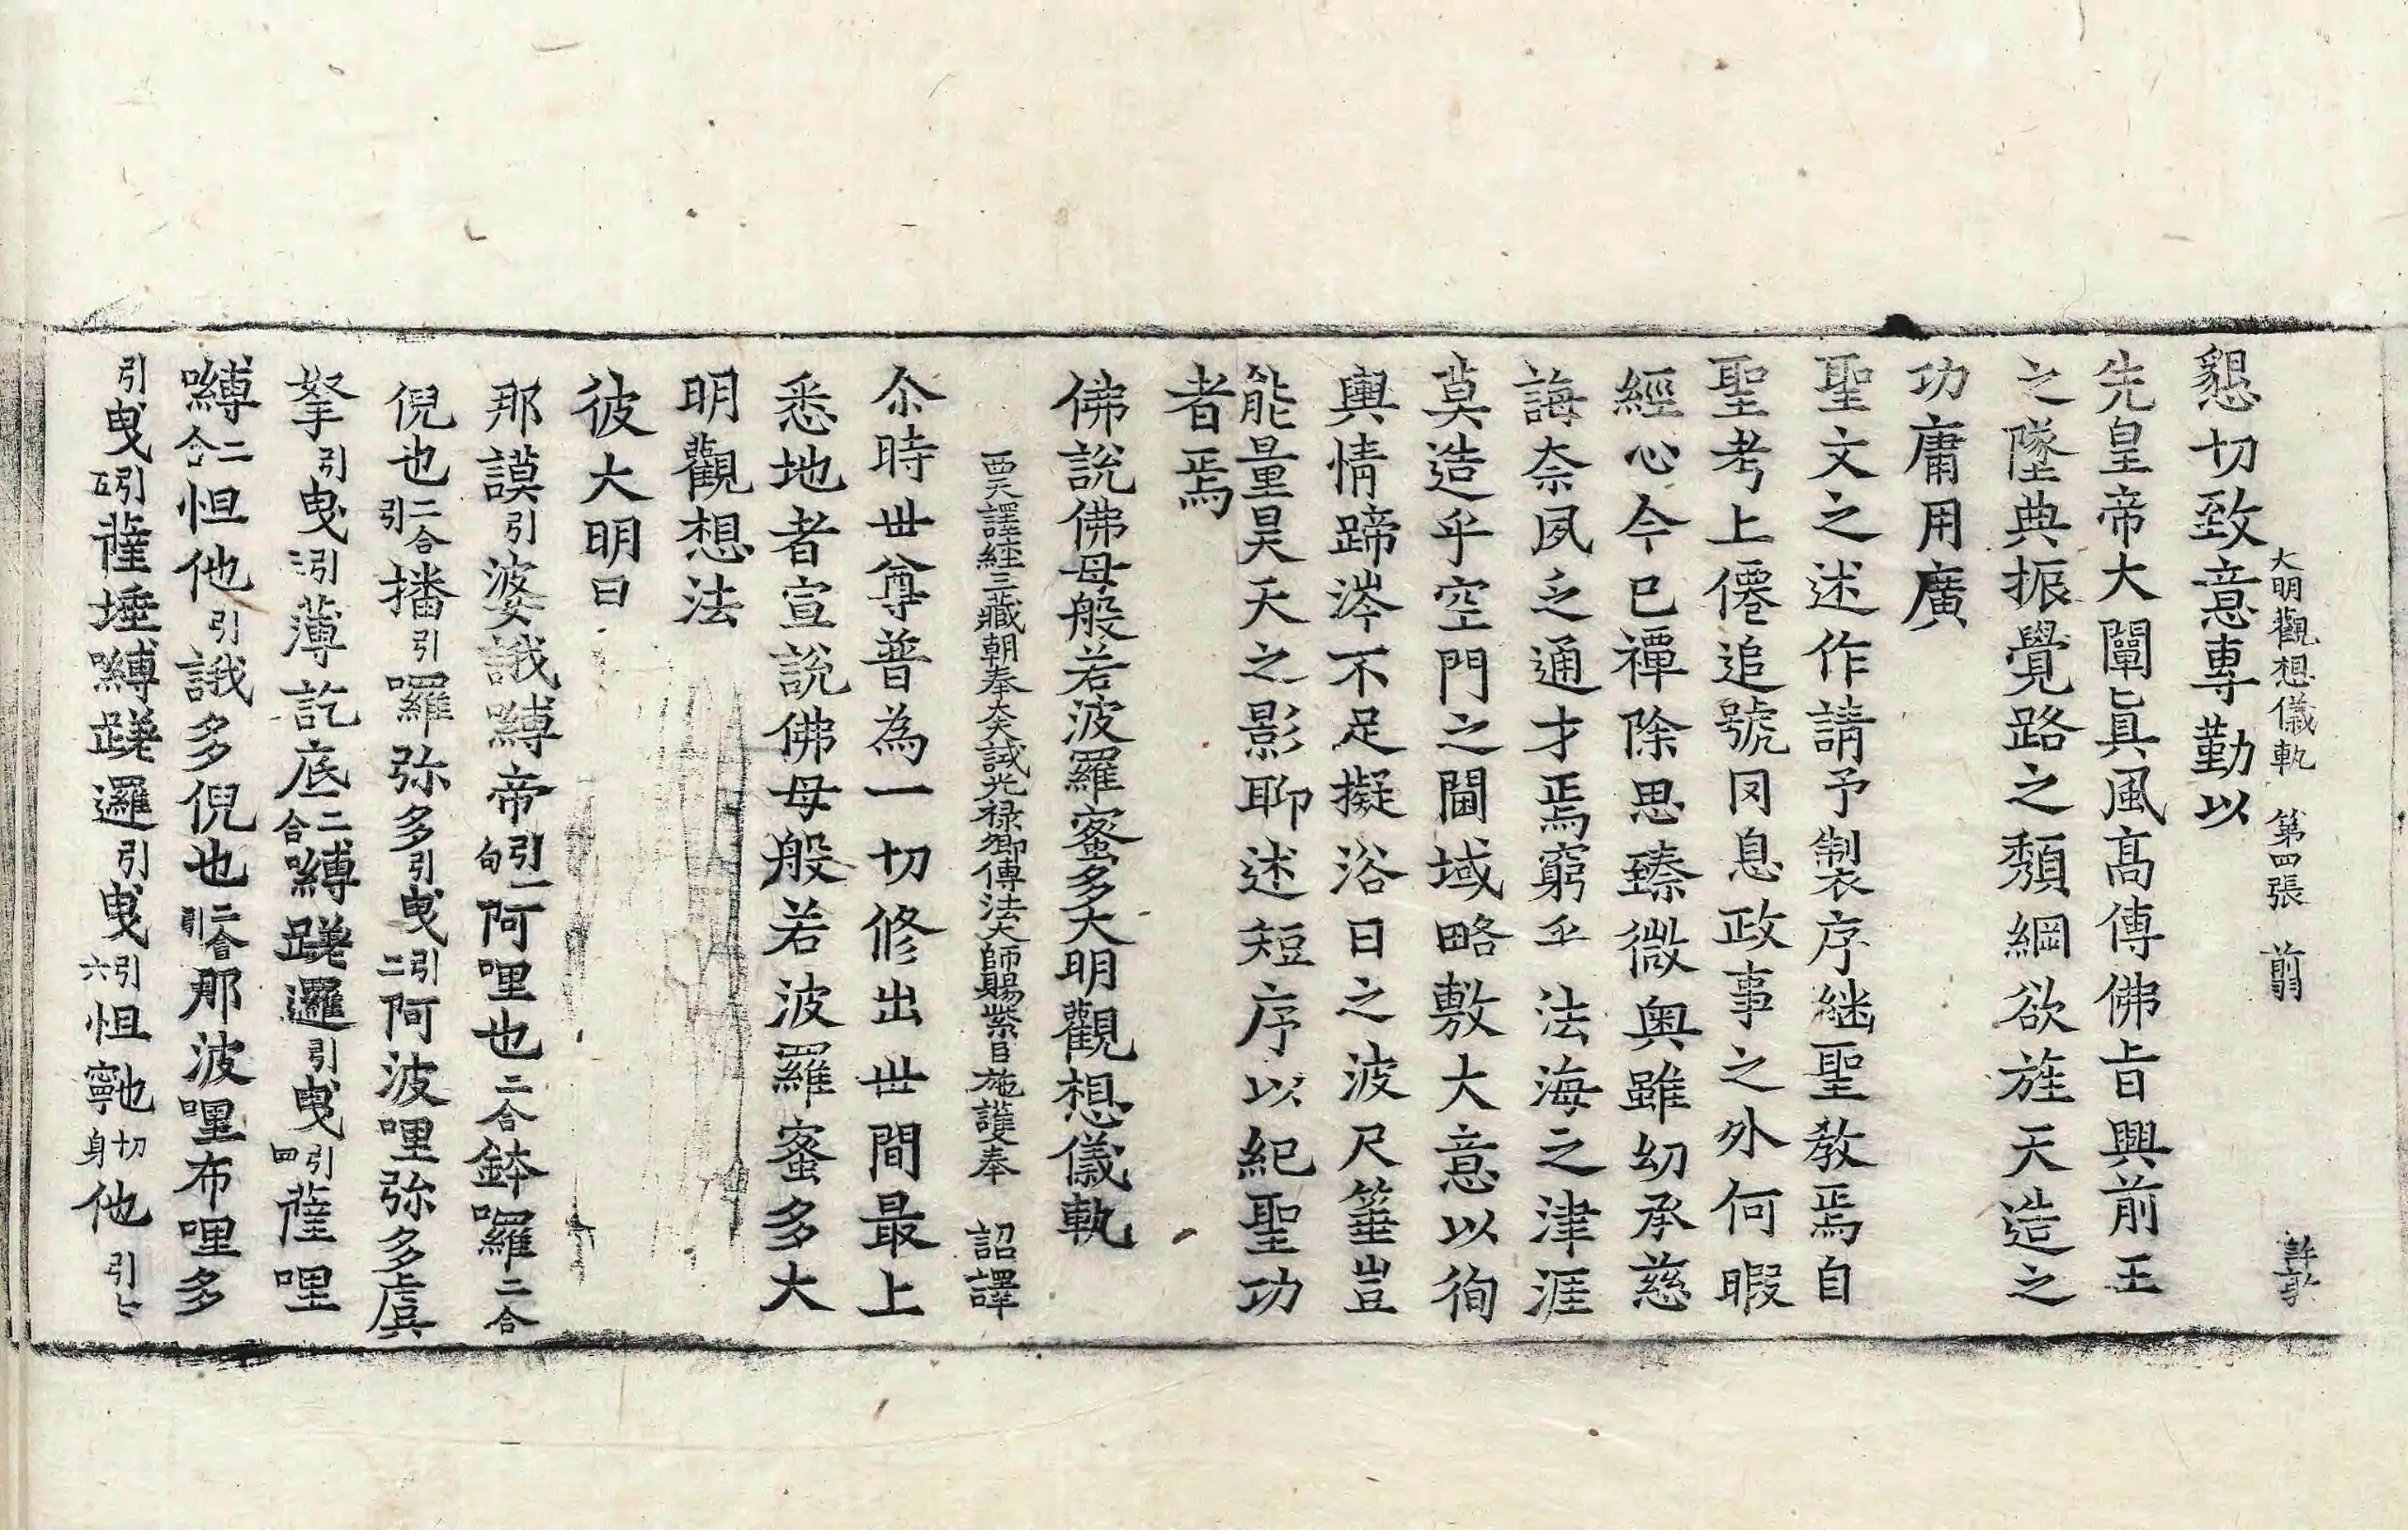 大明觀想儀軌 第四張 翦 許孜
懇切致意專勤以
先皇帝大闡真風高傳佛旨興前王
之墜典振覺路之頹綱欲旌天造之
功庸用廣
聖文之述作請予製序繼聖教焉自
聖考上僊追號罔息政事之外何暇
經心今已禫除思臻微奧雖幼承慈
誨奈夙乏通才焉窮乎法海之津涯
莫造乎空門之閫域略敷大意以徇
輿情蹄涔不足擬浴日之波尺箠豈
能量昊天之影聊述短序以紀聖功
者焉
佛說佛母般若波羅蜜多大明觀想儀軌
西天譯經三藏朝奉大夫試光祿卿傳法大師賜紫臣施護奉 詔譯
尒時世尊普為一切修出世間最上
悉地者宣說佛母般若波羅蜜多大
明觀想法
彼大明曰
那謨引婆誐嚩帝引一句阿哩也二合鉢囉二合
倪也二合引播引囉弥多引曳引二阿波哩弥多虞
拏引曳引三薄訖底二合嚩蹉邏引曳引四薩哩
嚩二合怛他引誐多倪也二合引那波哩布哩多
引曳引五薩埵嚩蹉邏引曳引六怛寧也切身他引七